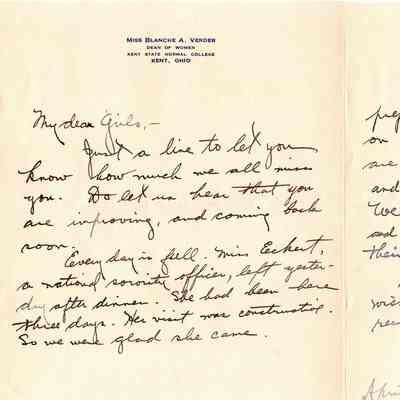 MISS BLANCHE A. VERDER
DEAN OF WOMEN
KENT STATE NORMAL COLLEGE
KENT, OHIO
My dear Girls,-
Just a line to let you
know how much we all miss
you. Do let us hear that you
are improving, and coming back
soon.
Every day is full. Miss Eckert,
a national sorority officer, left yester-
day after dinner. She had been here
three days. Her visit was constructive.
So we were glad she came.
on
are
and
We
sad
their